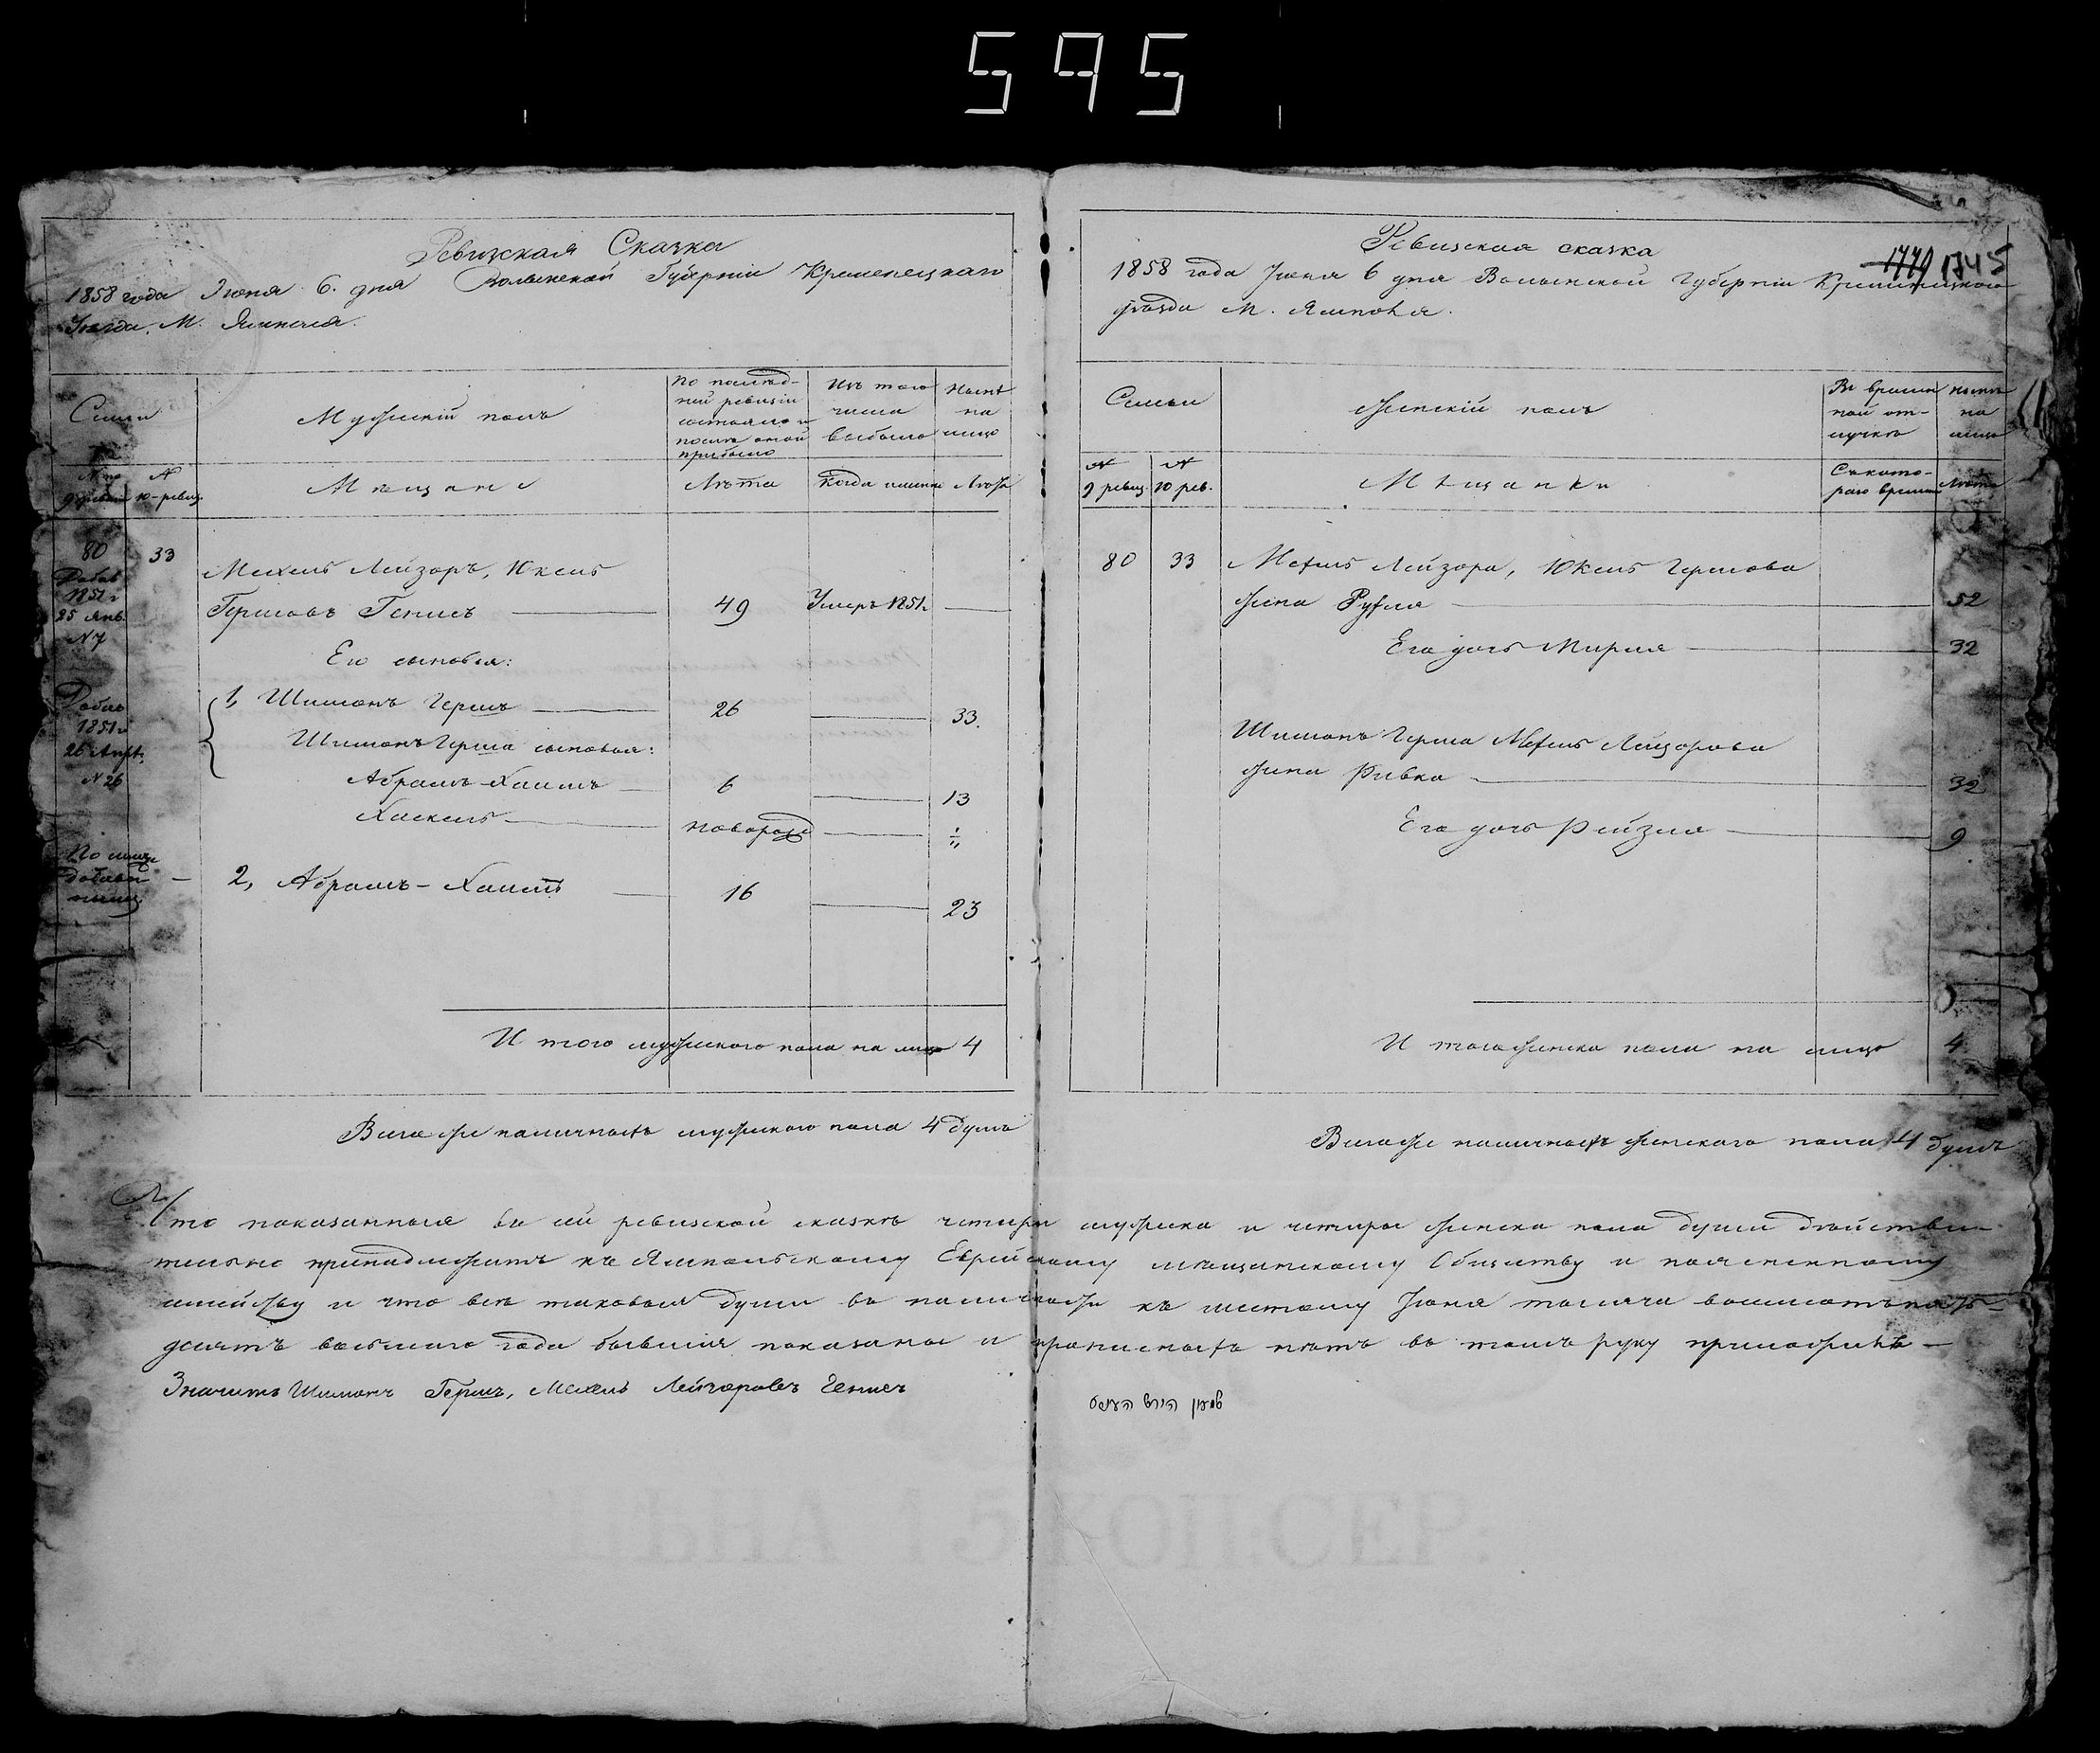 595
Ревизская Сказка
1858 года Июня 6. дня Волынской Губерніи Кременецкаго
Уезда. М. Ямполя.
Семьи
Мужескій полъ
По послѣд-
ней ревизіи
состояло и
послѣ оной
прибыло
Изъ того
числа
выбыло
Нынѣ
на
лицо
№ по
9 ревиз
№
10-ревиз.
Мѣщане
Лѣта
Когда именно
Лѣта
80
33
Добав
1851 г
25 Янв.
№ 7
Мехель Лейзоръ, Юкель
Гершовъ Генисъ
49
Умеръ 1851 г.
Его сыновья:
Добав
1851 г
26 Апр.
№ 26
1, Шимонъ Гершъ
26
33.
Шимонъ Герша сыновья:
Абрамъ-Хаимъ
6
13
Хаскель
новорожд
2, Абрамъ-Хаимъ
16
23
И того мужеского пола на лицо 4
Всего же наличность мужеского пола 4 душъ
Ревизская сказка
1770 1745
1858 года Июня 6 дня Волынской Губерніи Кременецкого
уѣзда М. Ямполя.
Семьи
Женскій полъ
Во времен
ной от-
лучкѣ
Нынѣ
на
лицо
№
9 ревиз.
№
10 рев.
Мѣщанки
Съ кото-
раго времени
Лѣта
80
33
Мехель Лейзора, Юкель Гершова
жена Рухля
52
Его дочь Мирля
32
Шимонъ Герша Мехель Лейзорова
жена Ривка
32
Его дочь Рейзля
9
И того женска пола на лицо 4
Всего же наличность женского пола 4 душъ
Что показанныя въ сей ревизской сказкѣ четыри мужеска и четыре женска пола души дѣйстви-
тельно принадлежатъ къ Ямпольскому Еврейскому мѣщанскому Обществу и поясненному
семейству и что всѣ таковыя души въ наличности къ шестому Июня тысяча восемсотъ пять-
десятъ восьмаго года бывшія показаны и прописныхъ нѣтъ въ томъ руку приложилъ —
Значитъ Шимонъ Гершъ, Мехель Лейзоровъ Генисъ
שמעון הירש העניס